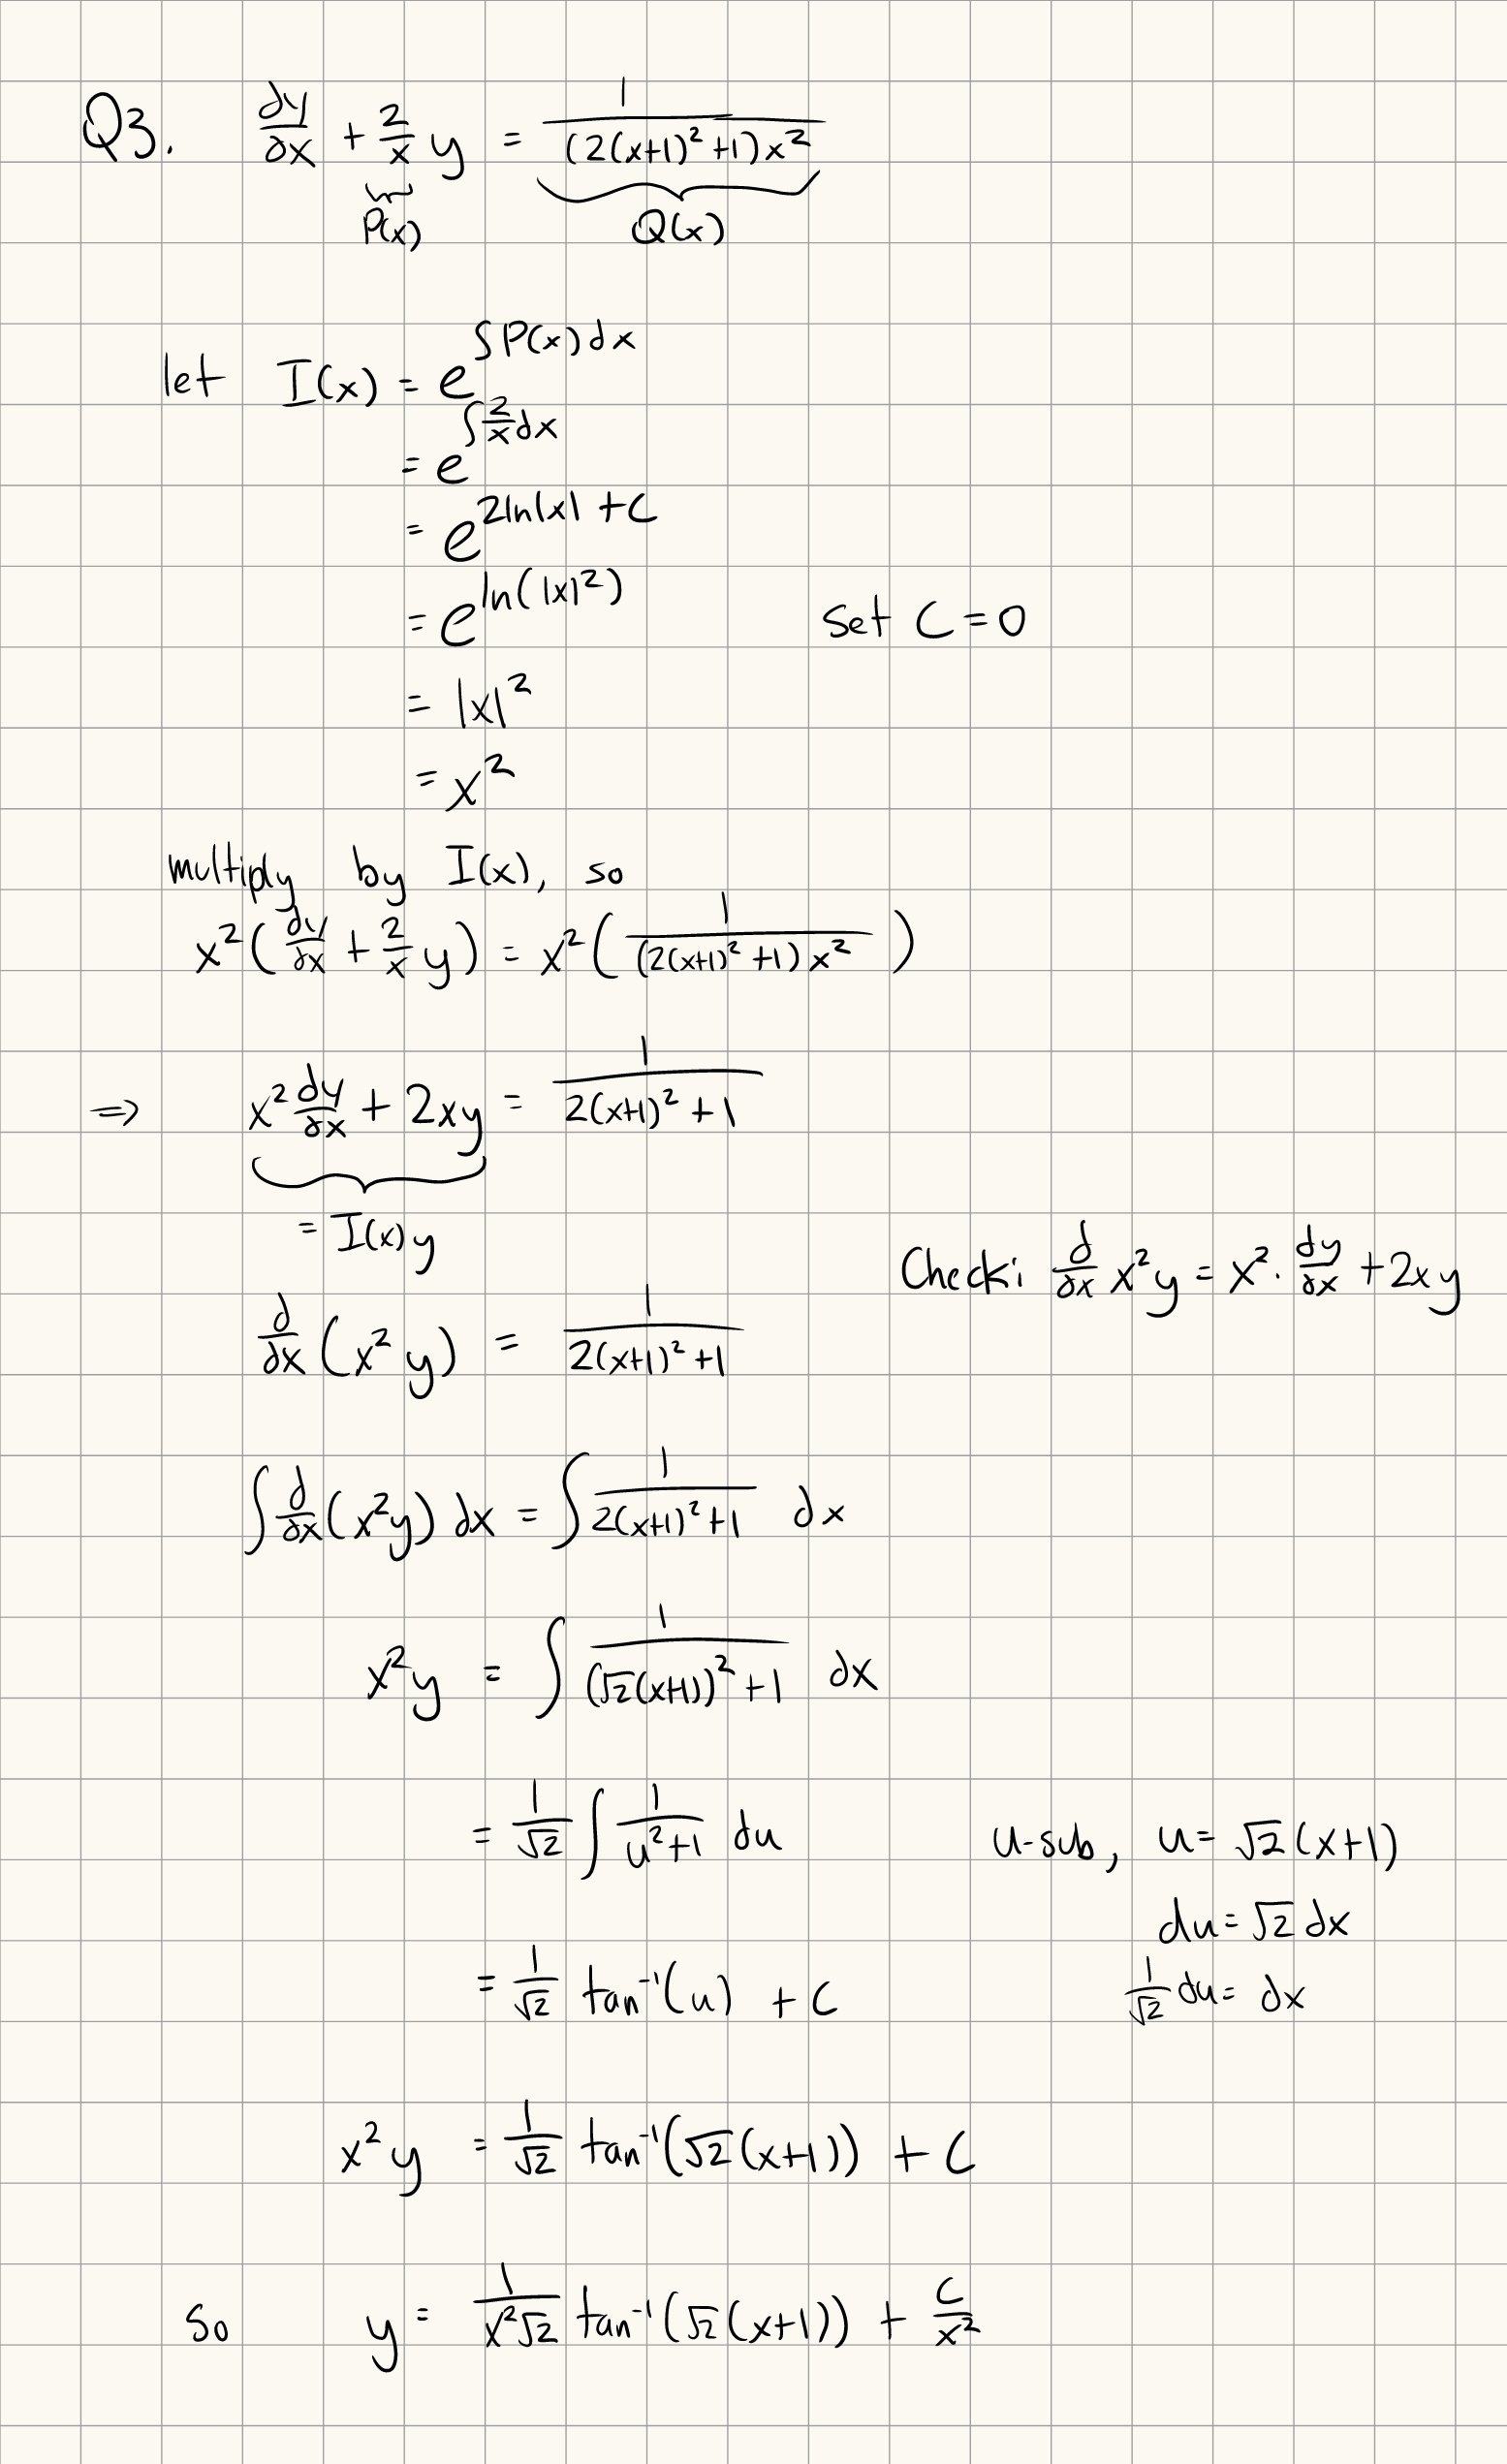 Q3. dy/dx + 2/x y = 1/((2(x+1)² +1)x²)
P(x) Q(x)
let I(x) = e^(∫P(x)dx)
= e^(∫2/x dx)
= e^(2ln|x| + C)
= e^(ln(|x|²)) Set C = 0
= |x|²
= x²
multiply by I(x), so
x²(dy/dx + 2/x y) = x²(1/((2(x+1)² +1)x²))
⇒ x² dy/dx + 2xy = 1/(2(x+1)² + 1)
= I(x)y
Check: d/dx x²y = x² · dy/dx + 2xy
d/dx (x²y) = 1/(2(x+1)² +1)
∫ d/dx (x²y) dx = ∫ 1/(2(x+1)² +1) dx
x²y = ∫ 1/((√2(x+1))² +1) dx
= 1/√2 ∫ 1/(u²+1) du u-sub, u = √2(x+1)
du = √2 dx
= 1/√2 tan⁻¹(u) + C 1/√2 du = dx
x²y = 1/√2 tan⁻¹(√2(x+1)) + C
So y = 1/(x²√2) tan⁻¹(√2(x+1)) + C/x²